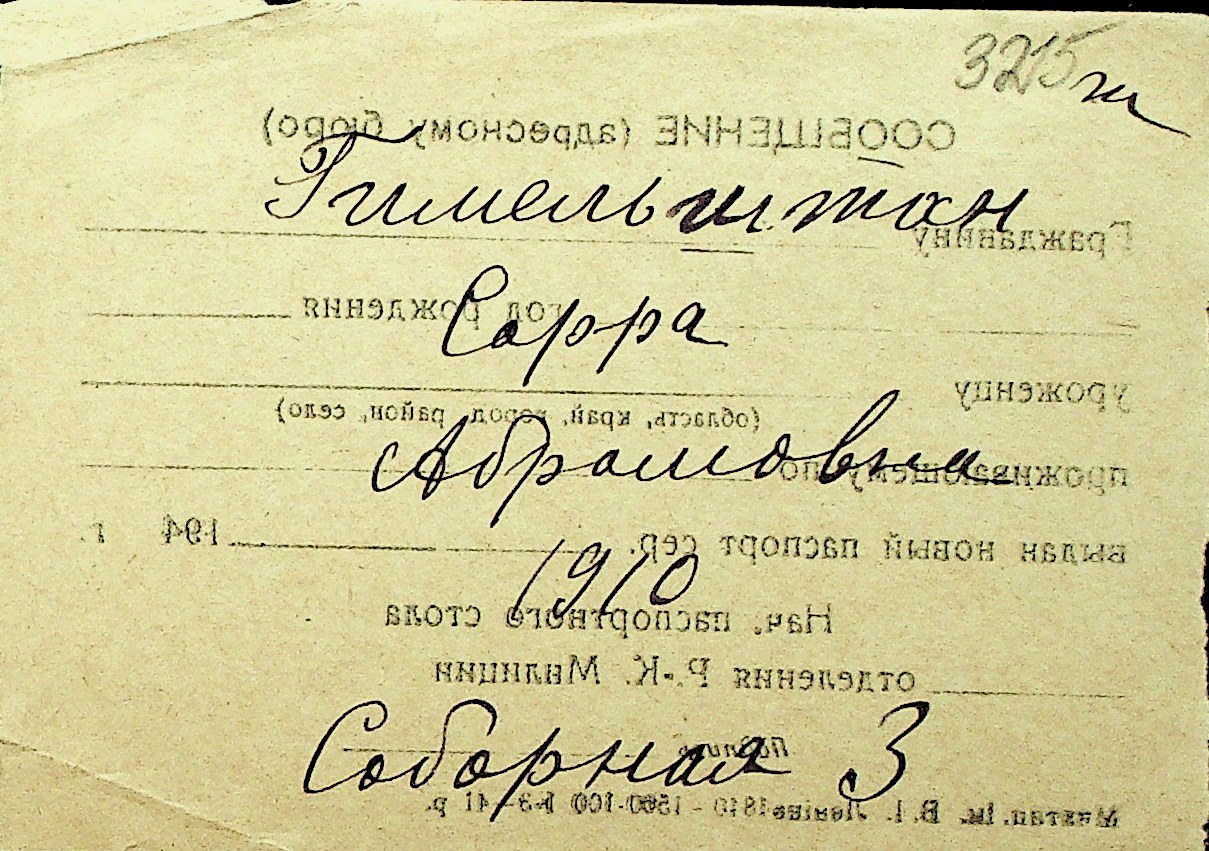 3215
СООБЩЕНИЕ (адресному бюро)
Гимельштан
Гражданину
год рождения
Сарра
уроженцу
(область, край, город, район, село)
Абрамовна
проживающему по
выдан новый паспорт сер. 194 г.
1910
Нач. паспортного стола
отделения Р.-К. Милиции
Соборная 3
Подпись
Ім. В. І. Леніна